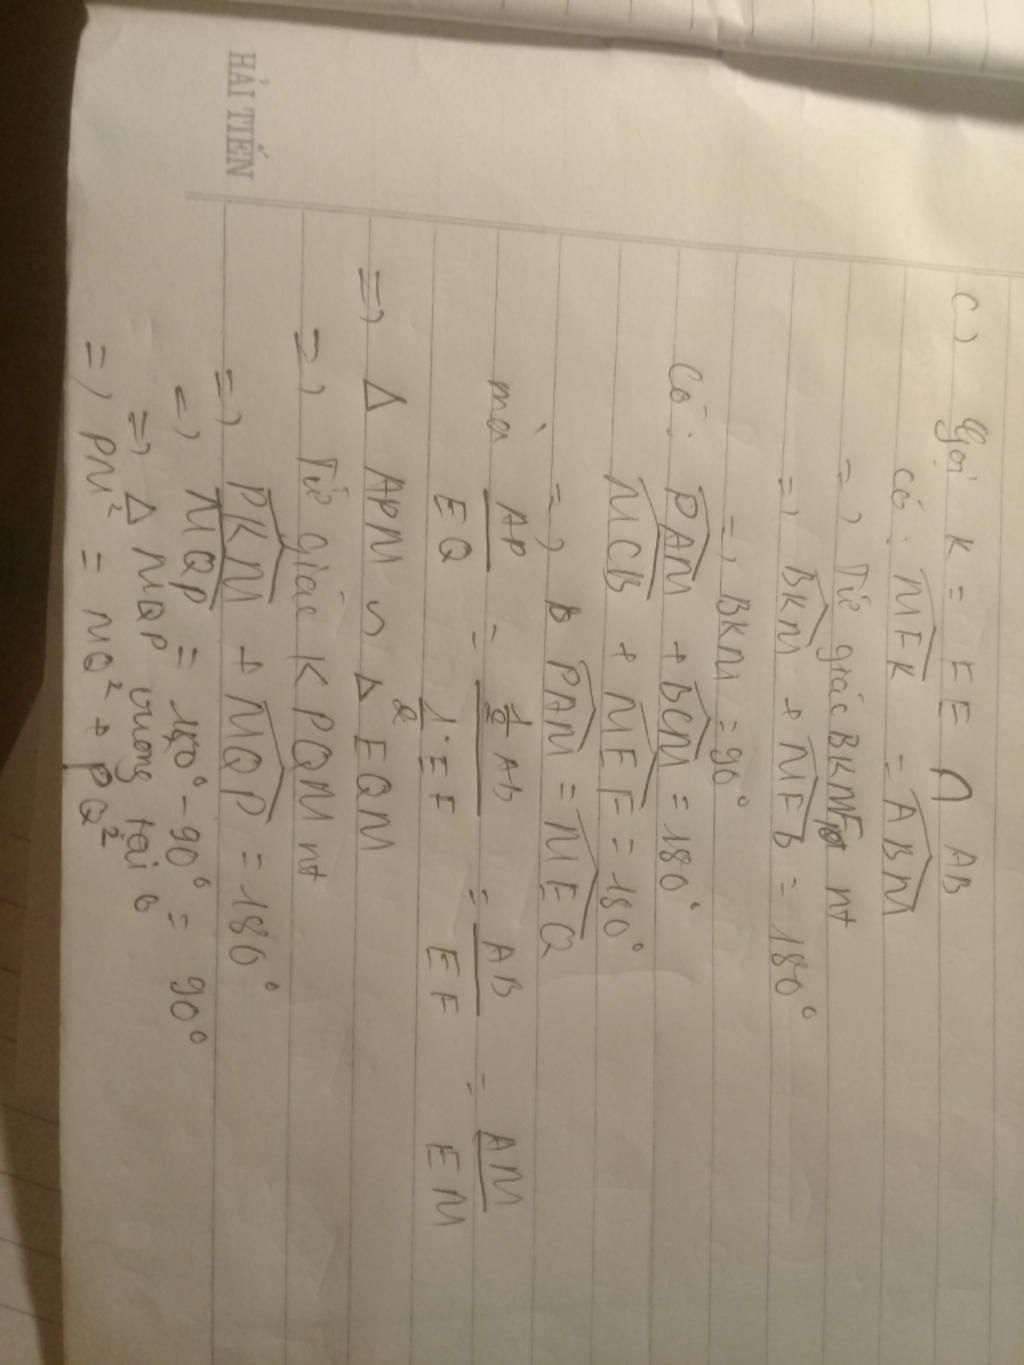 HẢI TIẾN
c) Gọi K = FE ∩ AB
có: MFK = ABM
=) Tứ giác BKMF nt
=) BKM + MFB = 180°
=) BKM = 90°
Có: PAM + BCM = 180°
MCB + MEF = 180°
=) PAM = MEQ
mà AP/EQ = 1/2 AB / 1/2 . EF = AB/EF = AM/EM
=) Δ APM ∽ Δ EQM
=) Tứ giác KPQM nt
=) PKM + MQP = 180°
=) MQP = 180° - 90° = 90°
=) Δ MQP vuông tại Q
=) PM² = MQ² + PQ²